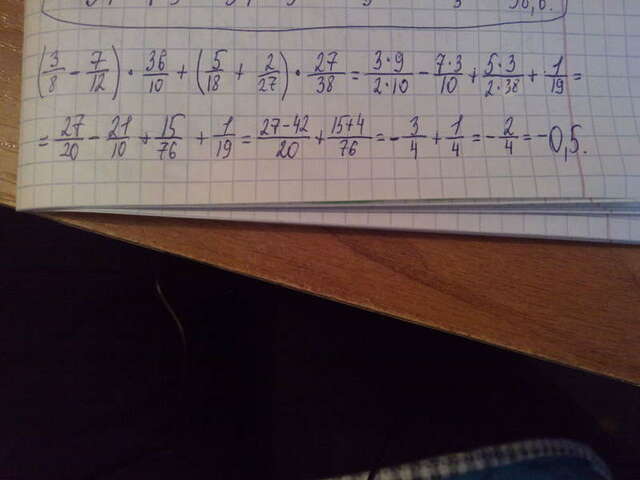 (3/8 - 7/12) · 36/10 + (5/18 + 2/27) · 27/38 = 3·9/2·10 - 7·3/10 + 5·3/2·38 + 1/19 =
= 27/20 - 21/10 + 15/76 + 1/19 = 27-42/20 + 15+4/76 = - 3/4 + 1/4 = - 2/4 = -0,5.